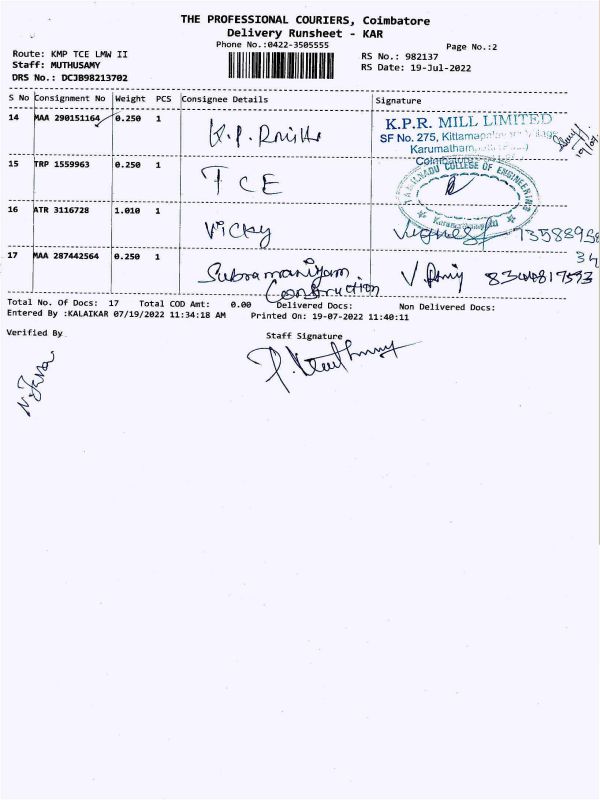 THE PROFESSIONAL COURIERS, Coimbatore
Delivery Runsheet - KAR
Phone No.:0422-3505555
Page No.:2
Route: KMP TCE LMW II
RS No.: 982137
Staff: MUTHUSAMY
RS Date: 19-Jul-2022
DRS No.: DCJB98213702
S No Consignment No Weight PCS Consignee Details Signature
14 MAA 290151164 0.250 1
K.P.R. MILL LIMITED
SF No. 275, Kittampalayam Village
Karumatham
Coimbatore
15 TRP 1559963 0.250 1 TCE
TAMILNADU COLLEGE OF ENGINEERING
16 ATR 3116728 1.010 1 Vicky
17 MAA 287442564 0.250 1 Subramaniyam
Construction
Total No. Of Docs: 17 Total COD Amt: 0.00 Delivered Docs: Non Delivered Docs:
Entered By :KALAIKAR 07/19/2022 11:34:18 AM Printed On: 19-07-2022 11:40:11
Verified By
Staff Signature